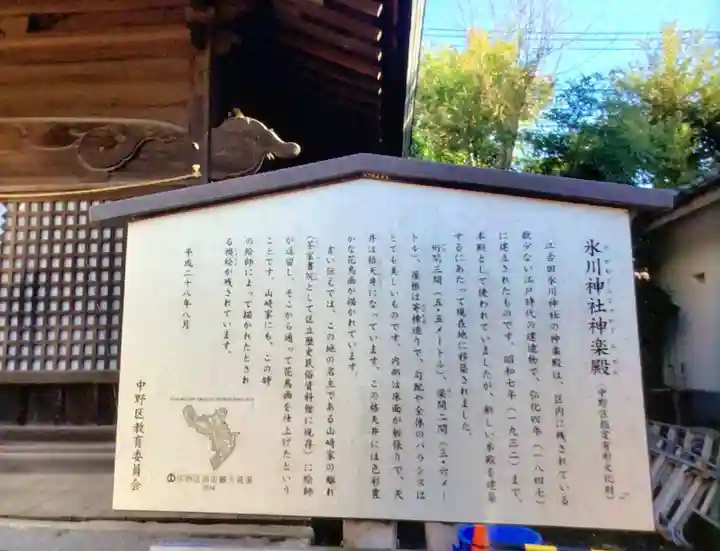 氷川神社神楽殿（中野区指定有形文化財）
江古田氷川神社の神楽殿は、区内に残されている
数少ない江戸時代の建造物で、弘化四年（一八四七）
に建立されたものです。昭和七年（一九三二）まで、
本殿として使われていましたが、新しい本殿を建築
するにあたって現在地に移築されました。
桁間三間（五・五メートル）、梁間二間（三・六メー
トル）、屋根は寄棟造りで、勾配や全体のバランスは
とても美しいものです。内部は床面が板張りで、天
井は格天井になっています。この格天井には色彩豊
かな花鳥画が描かれています。
言い伝えでは、この地の名主である山崎家の離れ
（茶室書院として区立歴史民俗資料館に現存）に絵師
が逗留し、そこから通って花鳥画を仕上げたという
ことです。山崎家にも、この時
の絵師によって描かれたとされ
る襖絵が残されています。
平成二十八年八月
中野区教育委員会